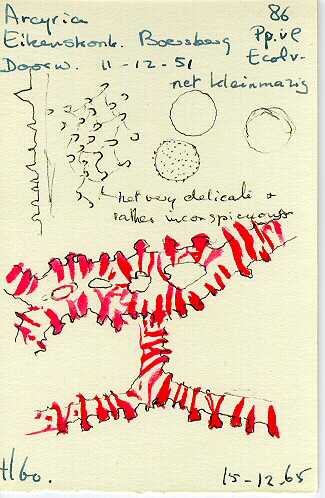 Arcyria
86
Eikenstronk. Boersberg
Doorw. 11-12-51
net kleinmazig
net very delicate &
rather inconspicuous
15-12-65